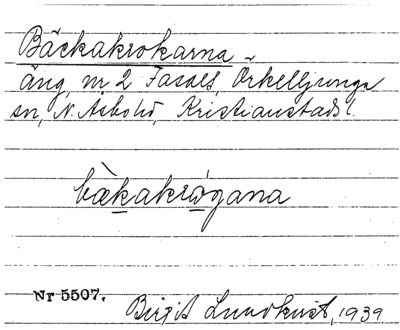 Bäckakrokarna
äng, nr 2 Fasalt, Örkelljunga
sn, N. Åsbohd, Kristianstads l.
bækakrωgana
Nr 5507.
Birgit Lundkvist, 1939